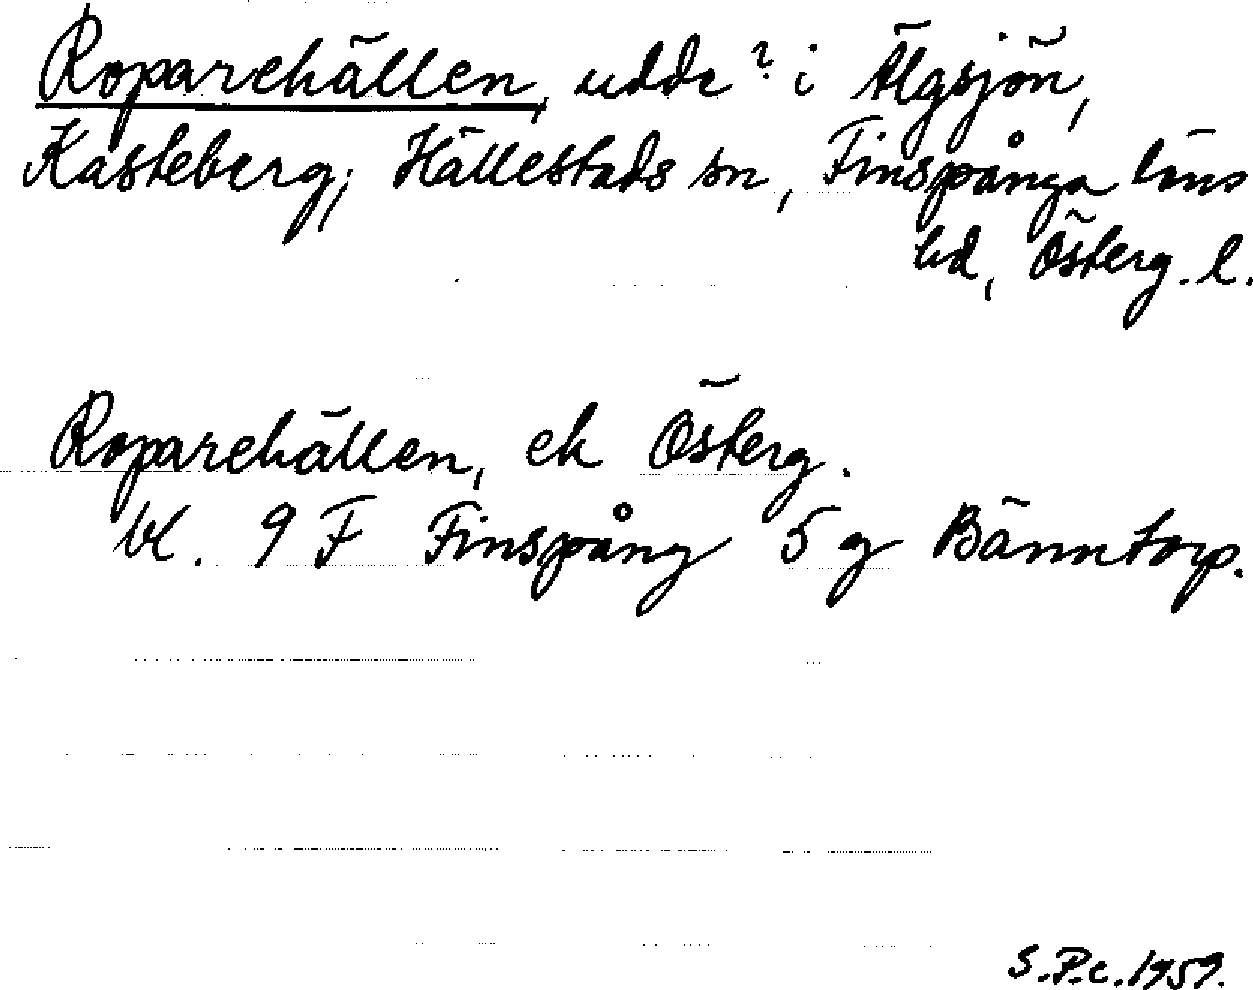 Roparehällen, udde? i Älgsjön,
Kasteberg, Hällestads sn, Finspånga läns
hd, Österg. l.
Roparehällen, ek Österg.
bl. 9 F Finspång 5 g Bänntorp.
S.P.c. 1959.